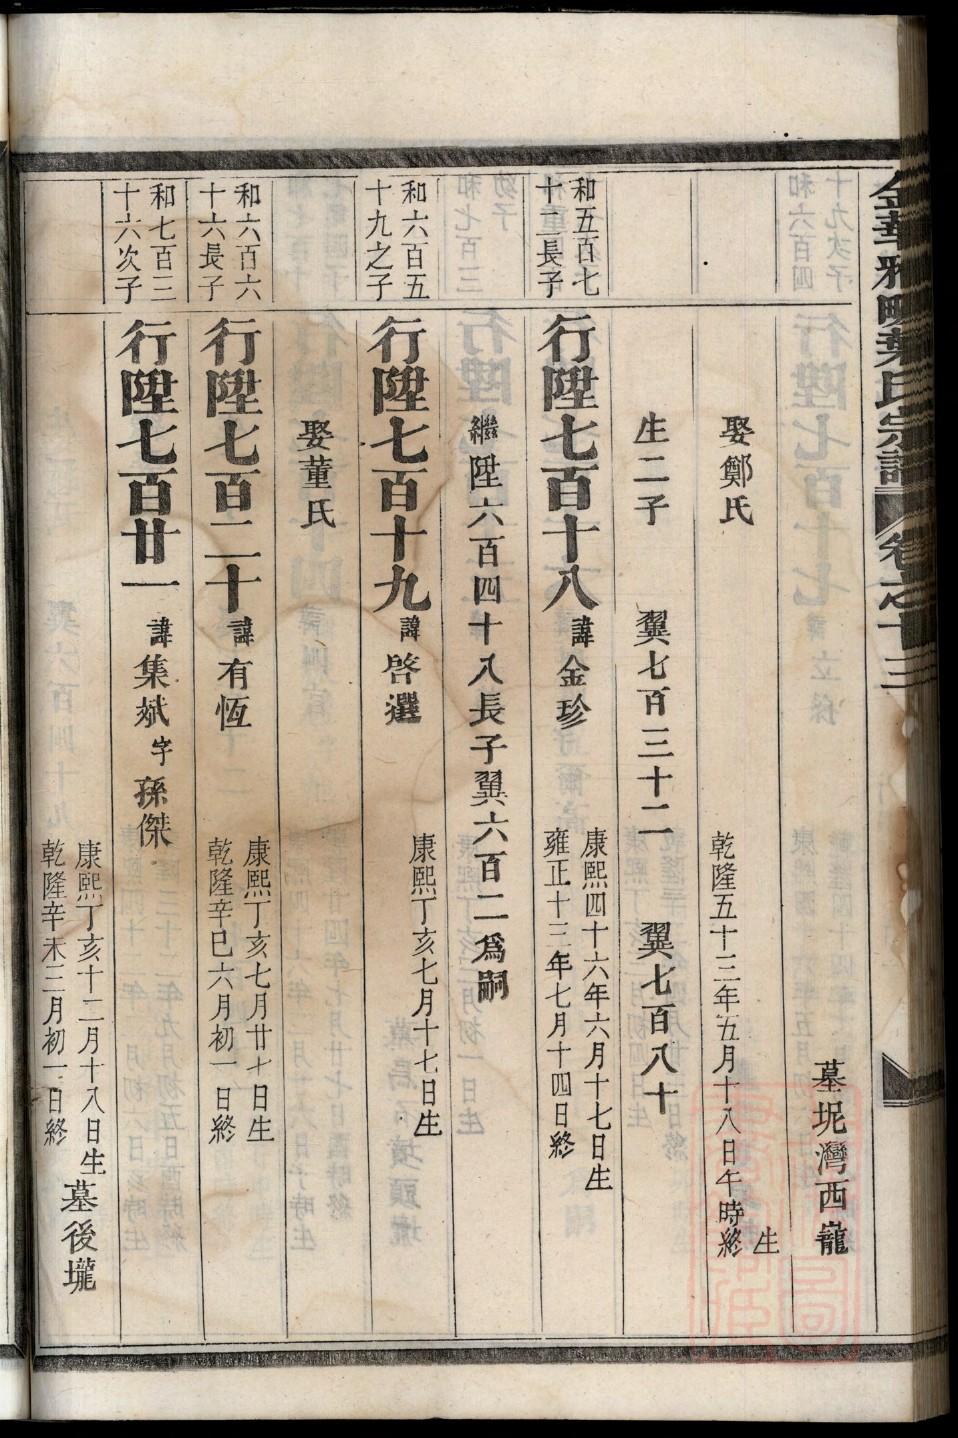 金華雅畈葉氏宗譜 卷之十三
墓坭灣西巃
娶鄭氏
生
乾隆五十三年五月十八日午時終
生二子 翼七百三十二 翼七百八十
和五百七
十二長子
行陞七百十八 諱金珍
康熙四十六年六月十七日生
雍正十三年七月十四日終
繼陞六百四十八長子翼六百二爲嗣
和六百五
十九之子
行陞七百十九 諱啓選
康熙丁亥七月十七日生
娶董氏
和六百六
十六長子
行陞七百二十 諱有恆
康熙丁亥七月廿七日生
乾隆辛巳六月初一日終
和七百三
十六次子
行陞七百廿一 諱集斌 字孫傑
康熙丁亥十二月十八日生
乾隆辛未三月初一日終
墓後壠